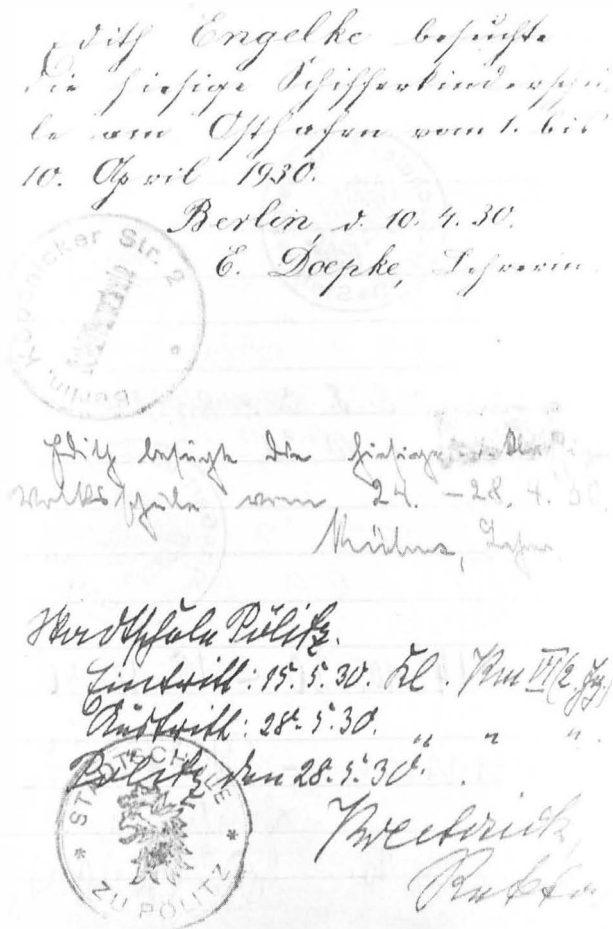 Edith Engelke besuchte
die hiesige Schifferkinderschu
le am Osthafen vom 1. bis
10. April 1930.
Berlin, d. 10. 4. 30.
E. Doepke, Lehrerin.
Berlin, Köpenicker Str. 2
Edith besuchte die hiesige
Volksschule vom 24. - 28. 4. 30
Lehrer
Stadtschule Pölitz.
Eintritt: 15. 5. 30. Kl.
Austritt: 28. 5. 30. " " "
Pölitz, den 28. 5. 30.
Rektor
STADTSCHULE
ZU PÖLITZ